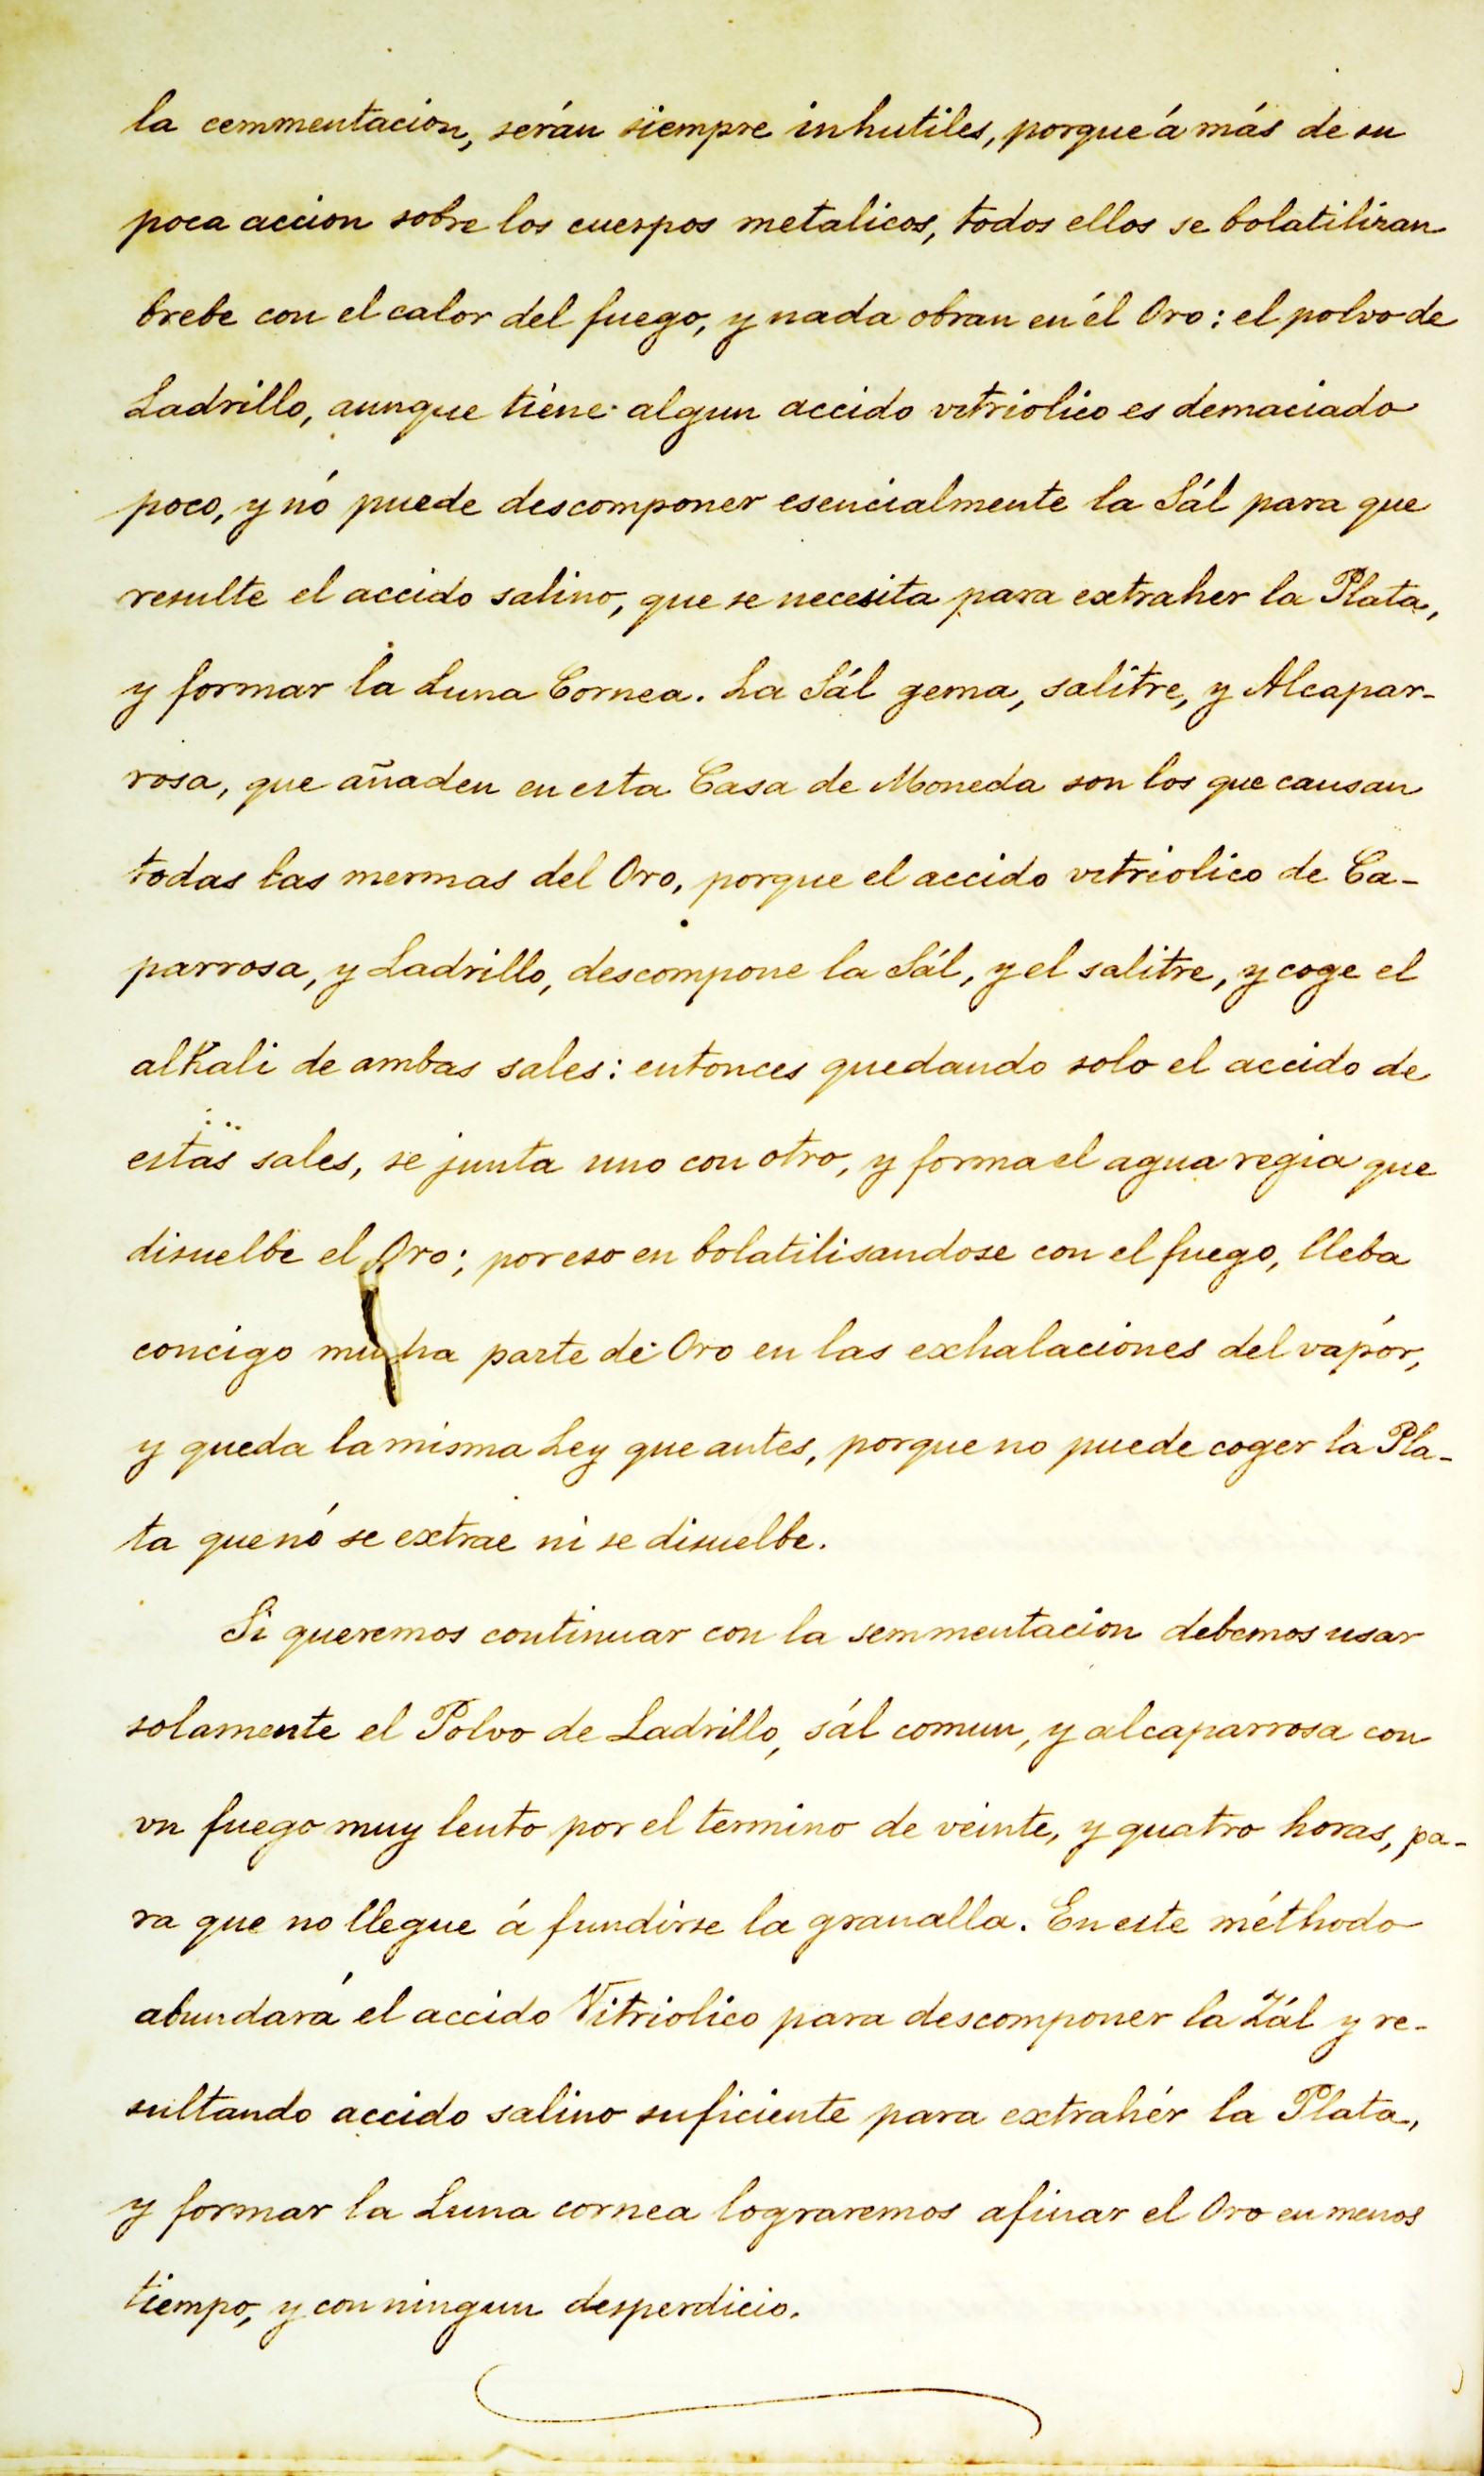 la cemmentacion, serán siempre inhutiles, porque á más de su
poca accion sobre los cuerpos metalicos, todos ellos se bolatilizan
brebe con el calor del fuego, y nada obran en él Oro: el polvo de
Ladrillo, aunque tiene algun accido vitriolico es demaciado
poco, y nó puede descomponer esencialmente la Sál para que
resulte el accido salino, que se necesita para extraher la Plata,
y formar la Luna Cornea. La Sál gema, salitre, y Alcapar-
rosa, que añaden en esta Casa de Moneda son los que causan
todas las mermas del Oro, porque el accido vitriolico de Ca-
parrosa, y Ladrillo, descompone la Sál, y el salitre, y coge el
alKali de ambas sales: entonces quedando solo el accido de
estas sales, se junta uno con otro, y forma el agua regia que
disuelbe el Oro; por eso en bolatilisandose con el fuego, lleba
concigo mucha parte de Oro en las exhalaciones del vapór,
y queda la misma Ley que antes, porque no puede coger la Pla-
ta que nó se extrae ni se disuelbe.
Si queremos continuar con la semmentacion debemos usar
solamente el Polvo de Ladrillo, sál comun, y alcaparrosa con
vn fuego muy lento por el termino de veinte, y quatro horas, pa-
ra que no llegue á fundirse la granalla. En este méthodo
abundará el accido Vitriolico para descomponer la Zál y re-
sultando accido salino suficiente para extrahér la Plata,
y formar la Luna cornea lograremos afinar el Oro en menos
tiempo, y con ningun desperdicio.